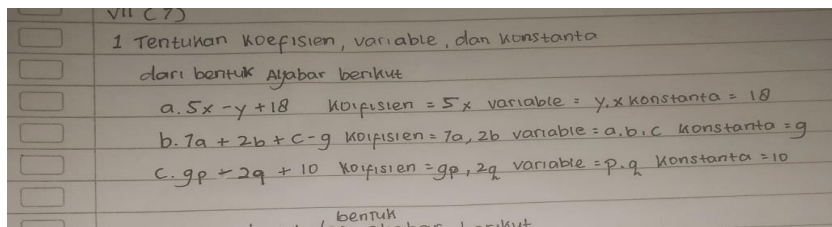 VII (7)
1 Tentukan Koefisien, variable, dan Konstanta
dari bentuk Aljabar berikut
a. 5x - y + 18 Koifisien = 5x variable = y, x konstanta = 18
b. 7a + 2b + c - g Koifisien = 7a, 2b variable = a, b, c Konstanta = g
c. gp - 2q + 10 Koifisien = gp, 2q variable = p, q Konstanta = 10
bentuk
berikut